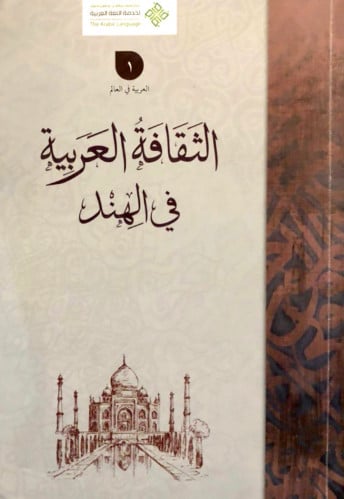 لخدمة اللغة العربية
The Arabic Language
١
العربية في العالم
الثَقَافَةُ العَرَبِيَة
في الهِنْد